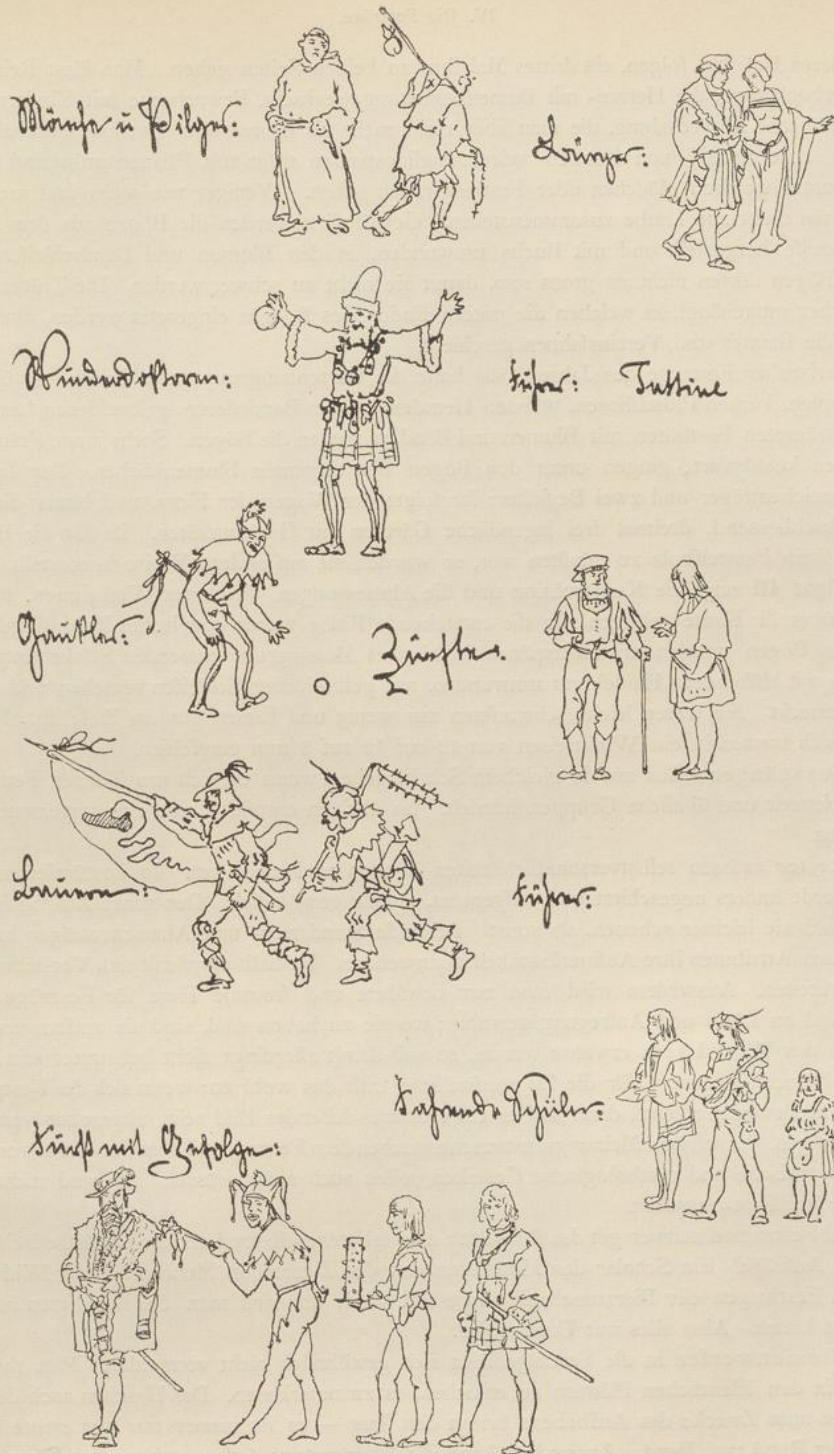 Mönche u Pilger:
Bürger:
Wunderdoktoren:
Führer:
Gaukler:
Zünfte.
Bauern:
Führer:
Fahrende Schüler:
Fürst mit Gefolge: